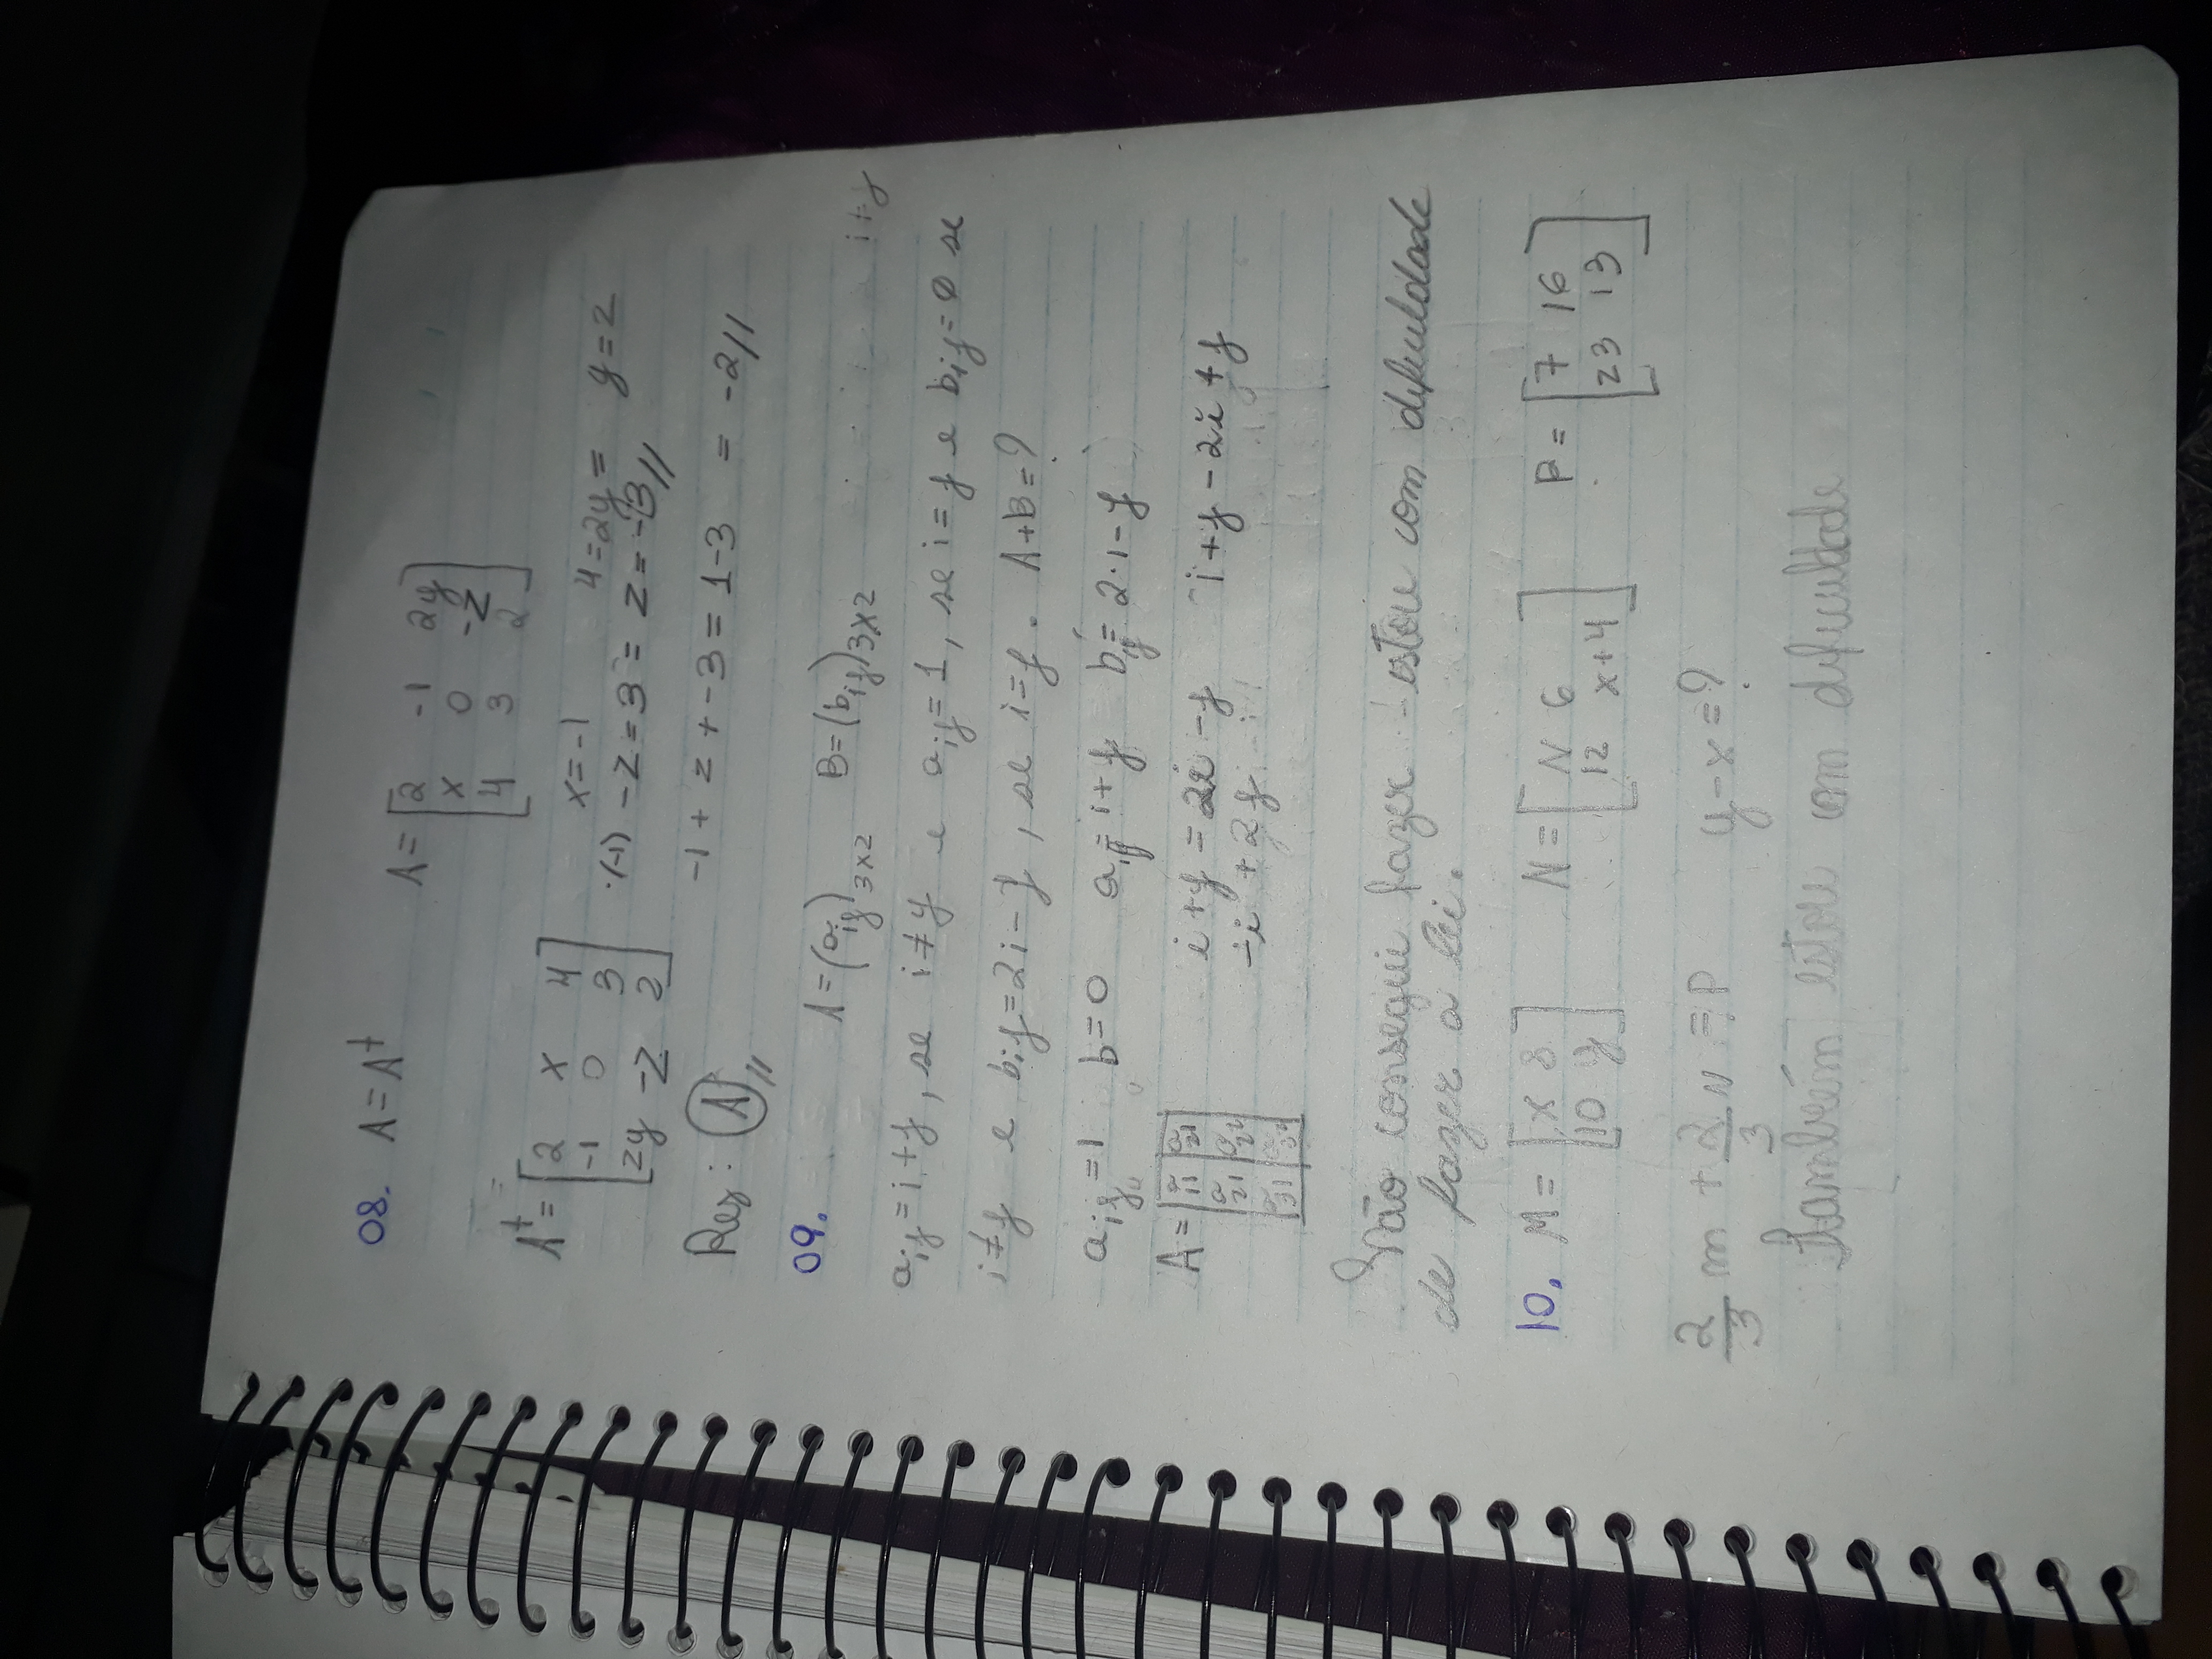 08. A = A^t
A = [2 -1 2y
x 0 -z
4 3 2]
A^t = [2 x 4
-1 0 3
2y -z 2]
x = -1 4 = 2y = y = 2
·(-1) -z = 3 = z = -3//
-1 + 2 + -3 = 1-3 = -2//
Res: A//
09. A = (a_ij)_3x2 B = (b_ij)_3x2 i ≠ j
a_ij = i + j, se i ≠ y e a_ij = 1, se i = j e b_ij = 0 se
i ≠ j e b_ij = 2i - j, se i = j. A + B = ?
a_ij = 1 b = 0 a_ij = i + j b_ij = 2·i - j
A = | a_11 | a_21 |
| a_21 | a_22 |
| a_31 | a_32 |
i + j = 2i - j i + j - 2i + j
-i + 2j
Não consegui fazer - estou com dificuldade
de fazer a lei.
10. M = [x 8
10 y]
N = [N 6
12 x+4]
P = [7 16
23 13]
2/3 m + 2/3 N = P y - x = ?
Também estou com dificuldade